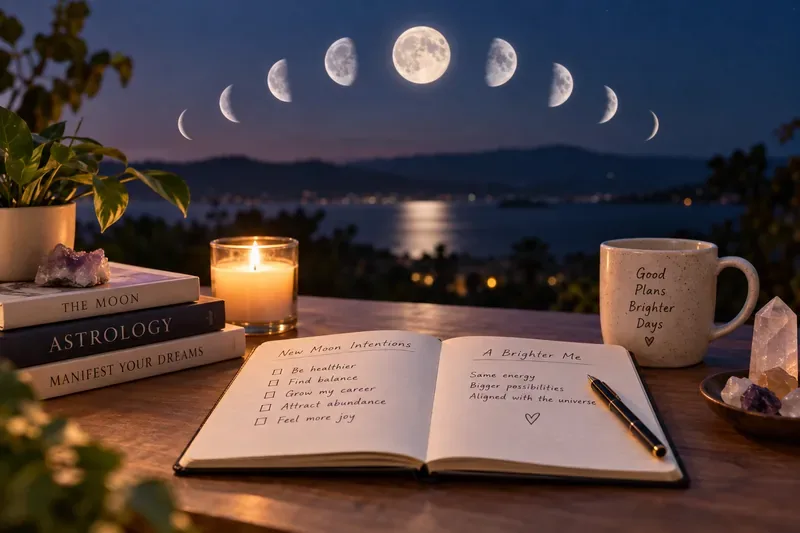 THE MOON
ASTROLOGY
MANIFEST YOUR DREAMS
New Moon Intentions
Be healthier
Find balance
Grow my career
Attract abundance
Feel more joy
A Brighter Me
Same energy
Bigger possibilities
Aligned with the universe
Good
Plans
Brighter
Days